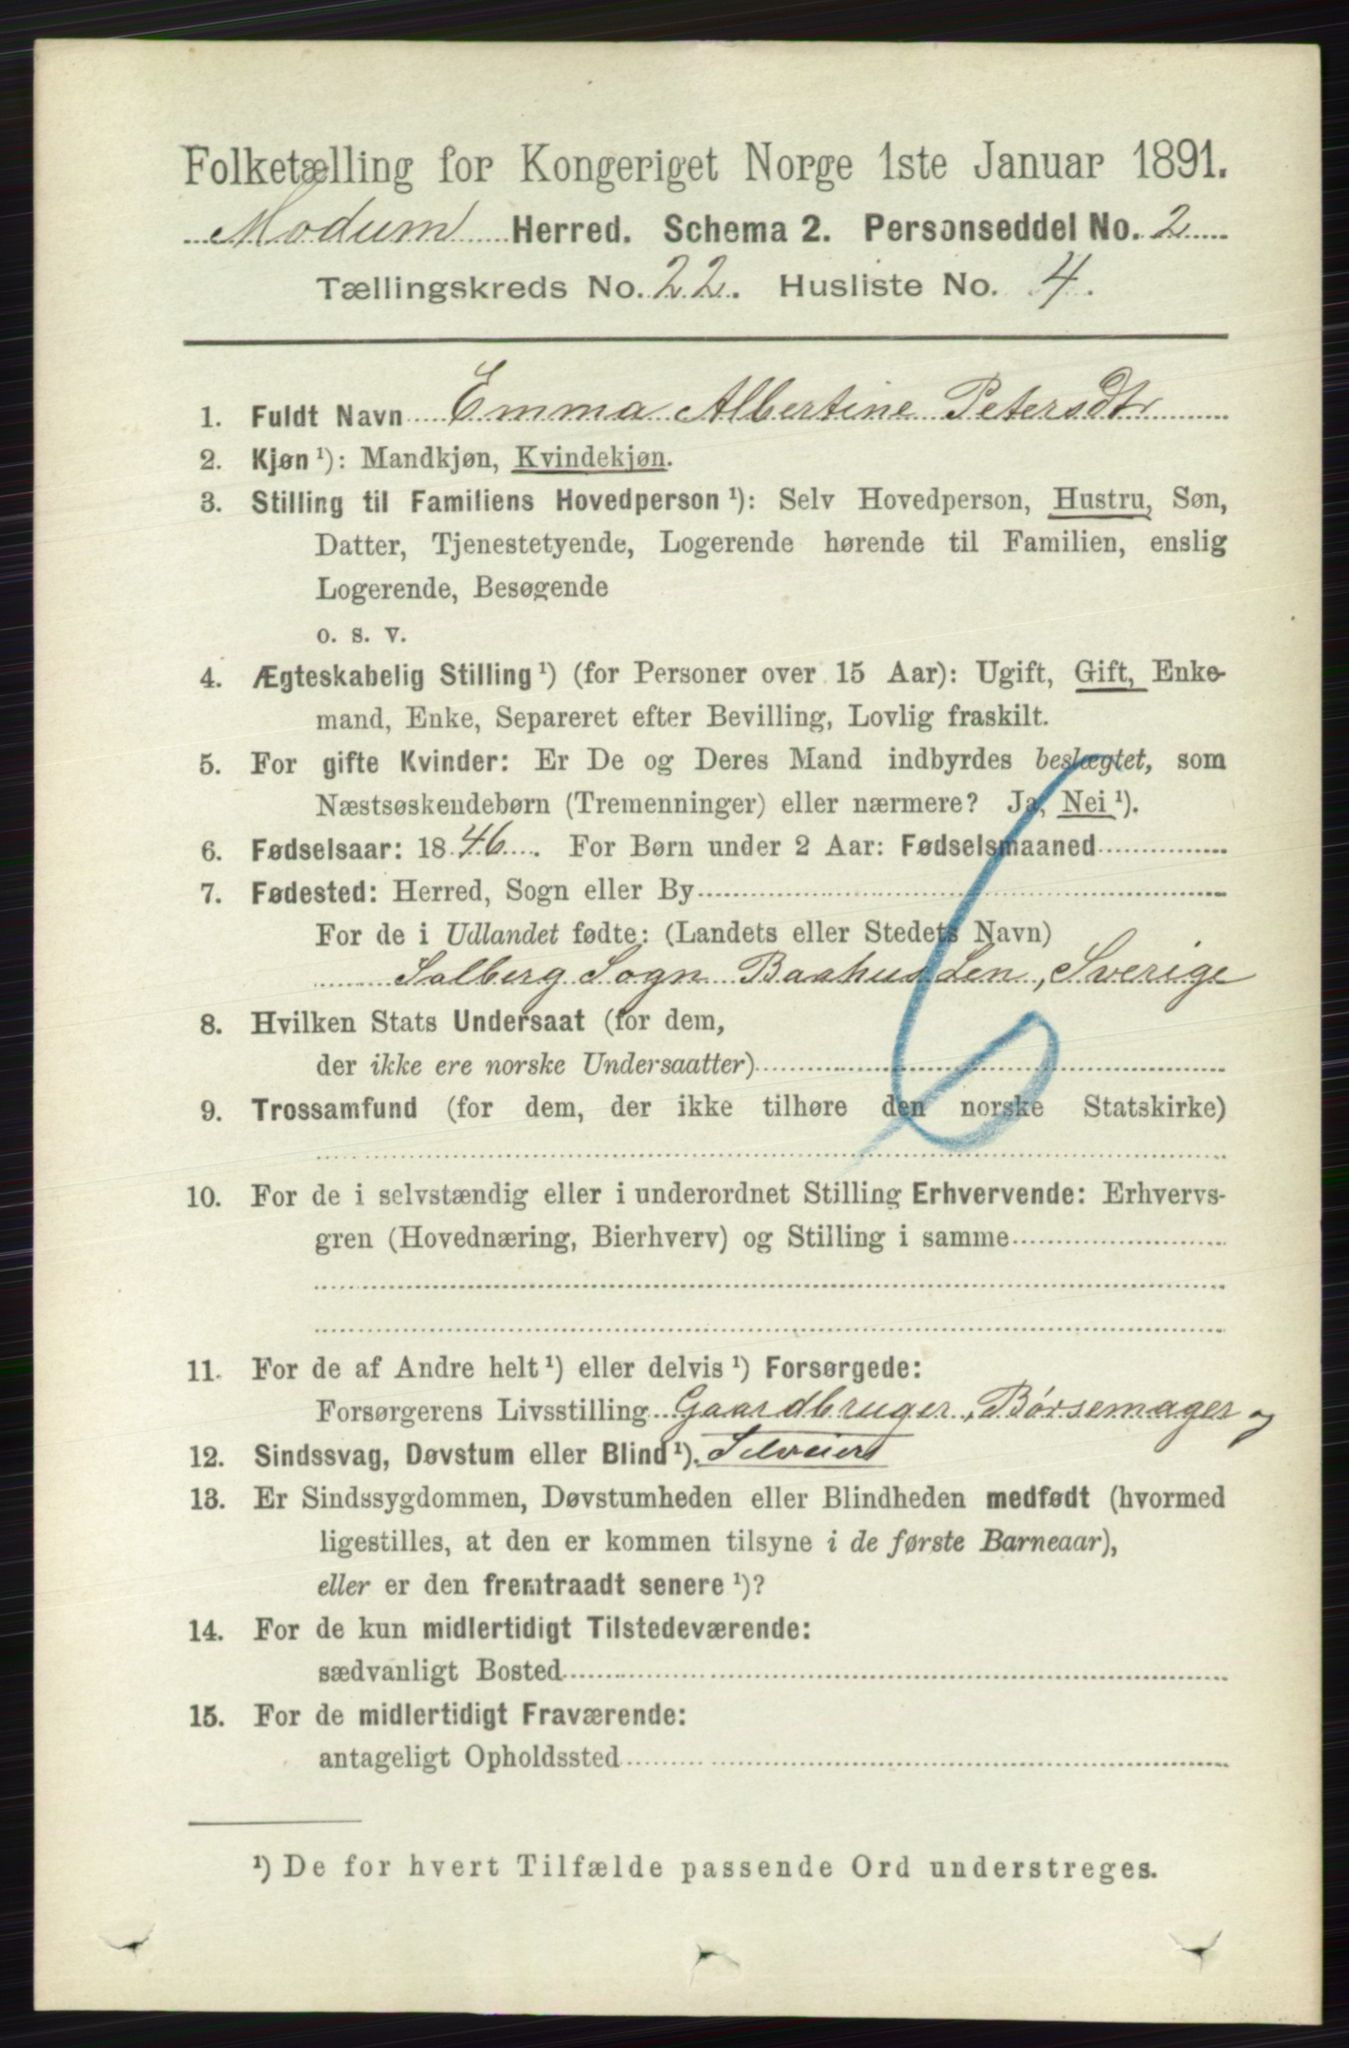 Folketælling for Kongeriget Norge 1ste Januar 1891.
Modum Herred. Schema 2. Personseddel No. 2
Tællingskreds No. 22. Husliste No. 4.
1. Fuldt Navn Emma Albertine Petersdtr
2. Kjøn ¹): Mandkjøn, Kvindekjøn.
3. Stilling til Familiens Hovedperson ¹): Selv Hovedperson, Hustru, Søn,
Datter, Tjenestetyende, Logerende hørende til Familien, enslig
Logerende, Besøgende
o. s. v.
4. Ægteskabelig Stilling ¹) (for Personer over 15 Aar): Ugift, Gift, Enke-
mand, Enke, Separeret efter Bevilling, Lovlig fraskilt.
5. For gifte Kvinder: Er De og Deres Mand indbyrdes beslægtet, som
Næstsøskendebørn (Tremenninger) eller nærmere? Ja, Nei ¹).
6. Fødselsaar: 1846. For Børn under 2 Aar: Fødselsmaaned
7. Fødested: Herred, Sogn eller By
For de i Udlandet fødte: (Landets eller Stedets Navn)
Solberg Sogn Baahus Len, Sverige
8. Hvilken Stats Undersaat (for dem,
der ikke ere norske Undersaatter)
9. Trossamfund (for dem, der ikke tilhøre den norske Statskirke)
10. For de i selvstændig eller i underordnet Stilling Erhvervende: Erhvervs-
gren (Hovednæring, Bierhverv) og Stilling i samme
11. For de af Andre helt ¹) eller delvis ¹) Forsørgede:
Forsørgerens Livsstilling Gaardbruger, Børsemager og
12. Sindssvag, Døvstum eller Blind ¹). Selveier
13. Er Sindssygdommen, Døvstumheden eller Blindheden medfødt (hvormed
ligestilles, at den er kommen tilsyne i de første Barneaar),
eller er den fremtraadt senere ¹)?
14. For de kun midlertidigt Tilstedeværende:
sædvanligt Bosted
15. For de midlertidigt Fraværende:
antageligt Opholdssted
¹) De for hvert Tilfælde passende Ord understreges.